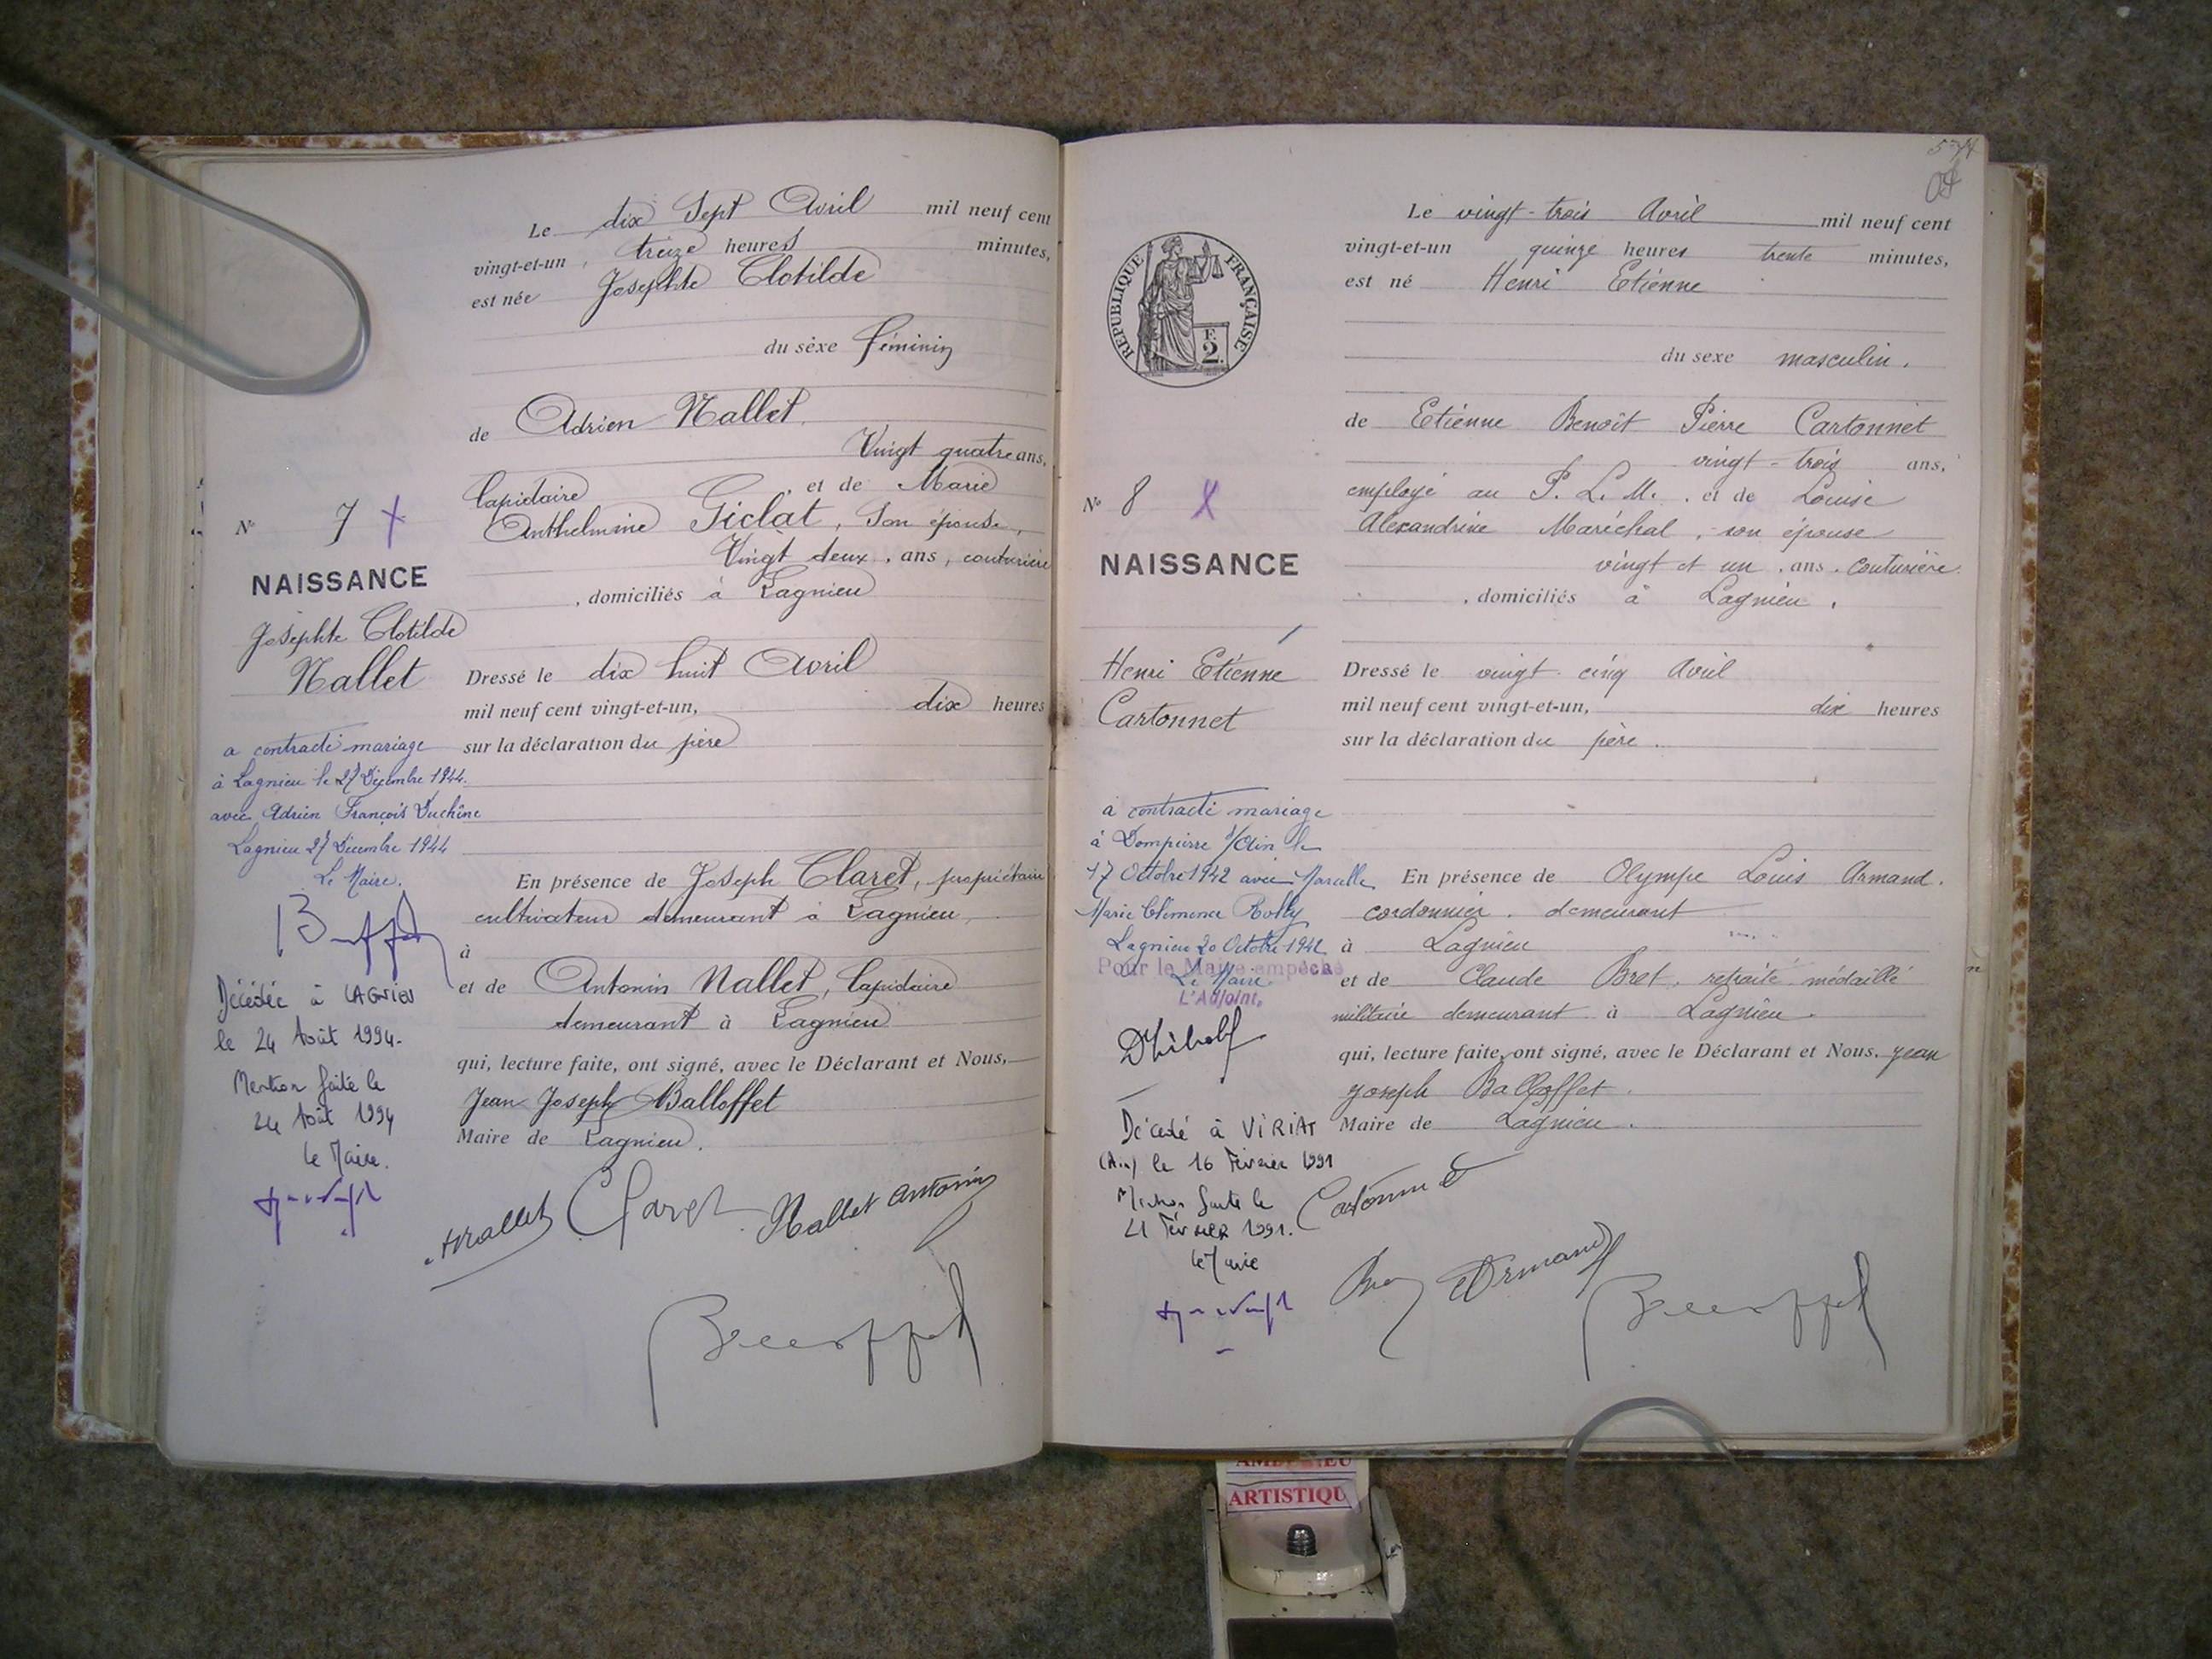 Le dix Sept Avril mil neuf cent
vingt-et-un, treize heures minutes,
est née Josephte Clotilde
du sexe féminin
de Adrien Nallet
Vingt quatre ans,
lapidaire, et de Marie
Anthelmine Giclat, Son épouse,
Vingt deux, ans, couturière
, domiciliés à Lagnieu
N° 7 X
NAISSANCE
Josephte Clotilde
Nallet
Dressé le dix huit Avril
mil neuf cent vingt-et-un, dix heures
sur la déclaration du père
a contracté mariage
à Lagnieu le 27 Décembre 1944
avec Adrien François Duchêne
Lagnieu 27 Décembre 1944
Le Maire.
En présence de Joseph Claret, propriétaire
cultivateur demeurant à Lagnieu,
à
et de Antonin Nallet, lapidaire
demeurant à Lagnieu
qui, lecture faite, ont signé, avec le Déclarant et Nous,
Jean Joseph Balloffet
Maire de Lagnieu.
Décédée à LAGNIEU
le 24 Août 1994.
Mention faite le
24 Août 1994
le Maire.
Nallet Claret Nallet Antonin
574
Le vingt-trois Avril mil neuf cent
vingt-et-un quinze heures trente minutes,
est né Henri Etienne
du sexe masculin.
REPUBLIQUE FRANÇAISE
F.
2.
de Etienne Benoît Pierre Cartonnet
vingt-trois ans,
employé au P.L.M., et de Louise
Alexandrine Maréchal, son épouse
vingt et un, ans, couturière.
, domiciliés à Lagnieu.
N° 8 X
NAISSANCE
Henri Etienne
Cartonnet
Dressé le vingt-cinq Avril
mil neuf cent vingt-et-un, dix heures
sur la déclaration du père.
a contracté mariage
à Dompierre s/Ain le
17 Octobre 1942 avec Marcelle
Marie Clémence Rolly
Lagnieu 20 Octobre 1942
Pour le Maire empêché
Le Maire.
L'Adjoint,
En présence de Olympe Louis Armand.
cordonnier. demeurant
à Lagnieu
et de Claude Bret, retraité médaillé
militaire demeurant à Lagnieu.
qui, lecture faite, ont signé, avec le Déclarant et Nous, Jean
Joseph Balloffet.
Maire de Lagnieu.
Décédé à VIRIAT
(Ain) le 16 Février 1991
Mention faite le
21 Février 1991.
le Maire
Cartonnet
Armand
AMBERIEU
ARTISTIQU